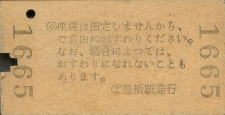 1665
◎座席は指定しませんから、
ご自由におすわりください。
なお、場合によつては、
おすわりになれないことも
あります。
②豊橋駅発行
1665